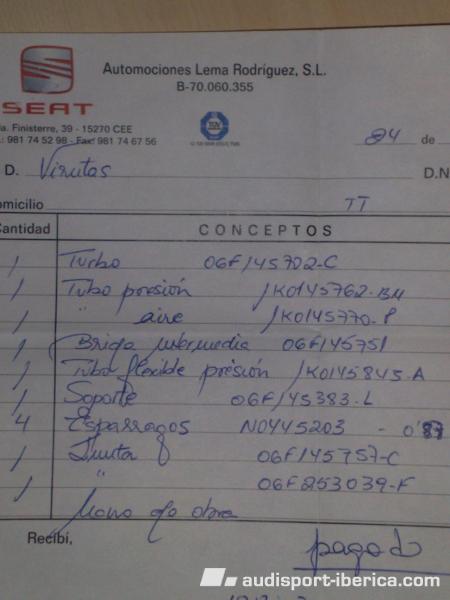 Automociones Lema Rodríguez, S.L.
B-70.060.355
SEAT
TÜV
da. Finisterre, 39 - 15270 CEE
.: 981 74 52 98 - Fax: 981 74 67 56
24 de
D. Virutas D.N
omicilio TT
Cantidad CONCEPTOS
1 Turbo 06F145702-C
1 Tubo presión 1K0145762-BM
1 " aire 1K0145770-P
1 Brida intermedia 06F145751
1 Tubo flexible presión 1K0145845-A
1 Soporte 06F145383-L
4 Esparragos N0445203 - 0'87
1 Junta 06F145757-C
1 " 06F253039-F
Mano de obra
Recibí, pagado
audisport-iberica.com